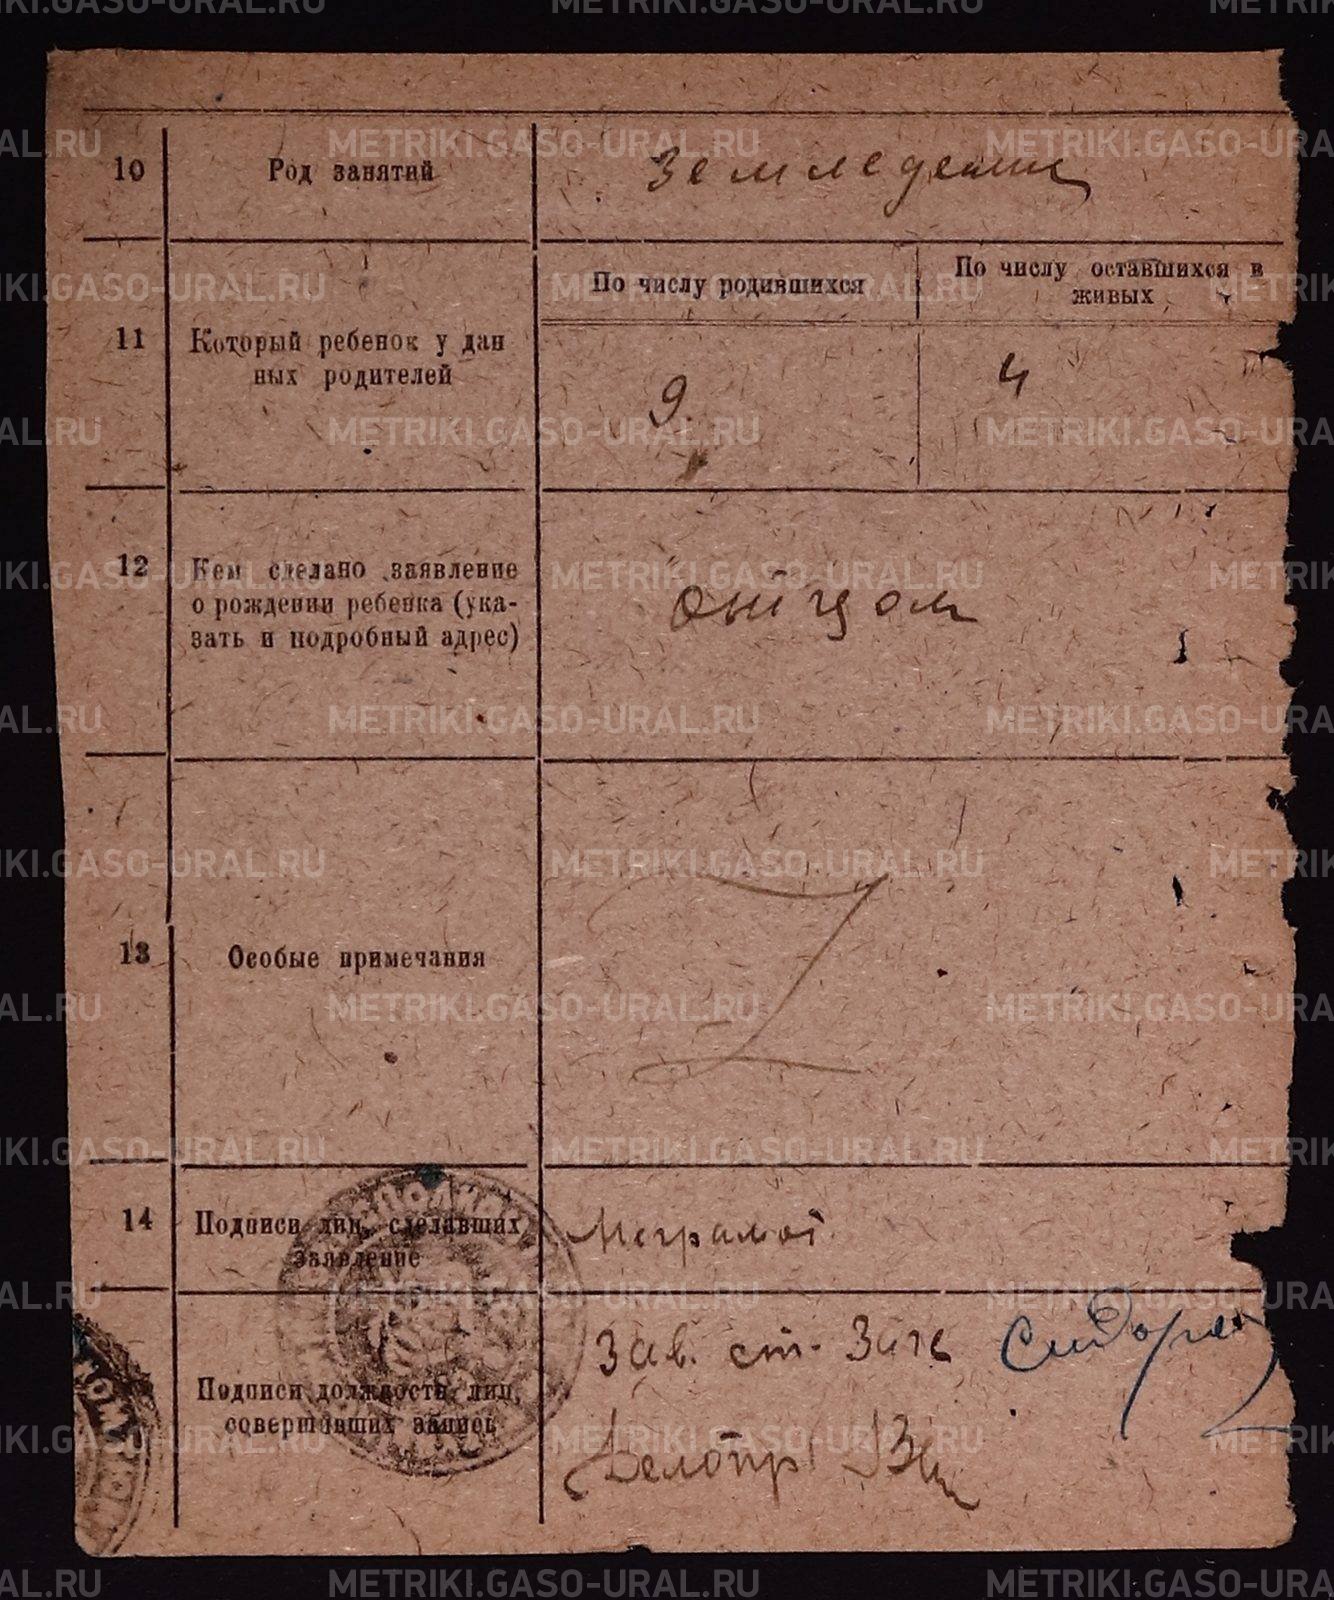 10
Род занятий
Земледелие
11
Который ребенок у дан
ных родителей
По числу родившихся
По числу оставшихся в
живых
9.
4
12
Кем сделано заявление
о рождении ребенка (ука-
зать и подробный адрес)
отцом
13
Особые примечания
Z
14
Подписи лиц, сделавших
заявление
Неграмот.
Подписи должностн. лиц,
совершивших запись
Зав. ст. Загс
Делопр
METRIKI.GASO-URAL.RU